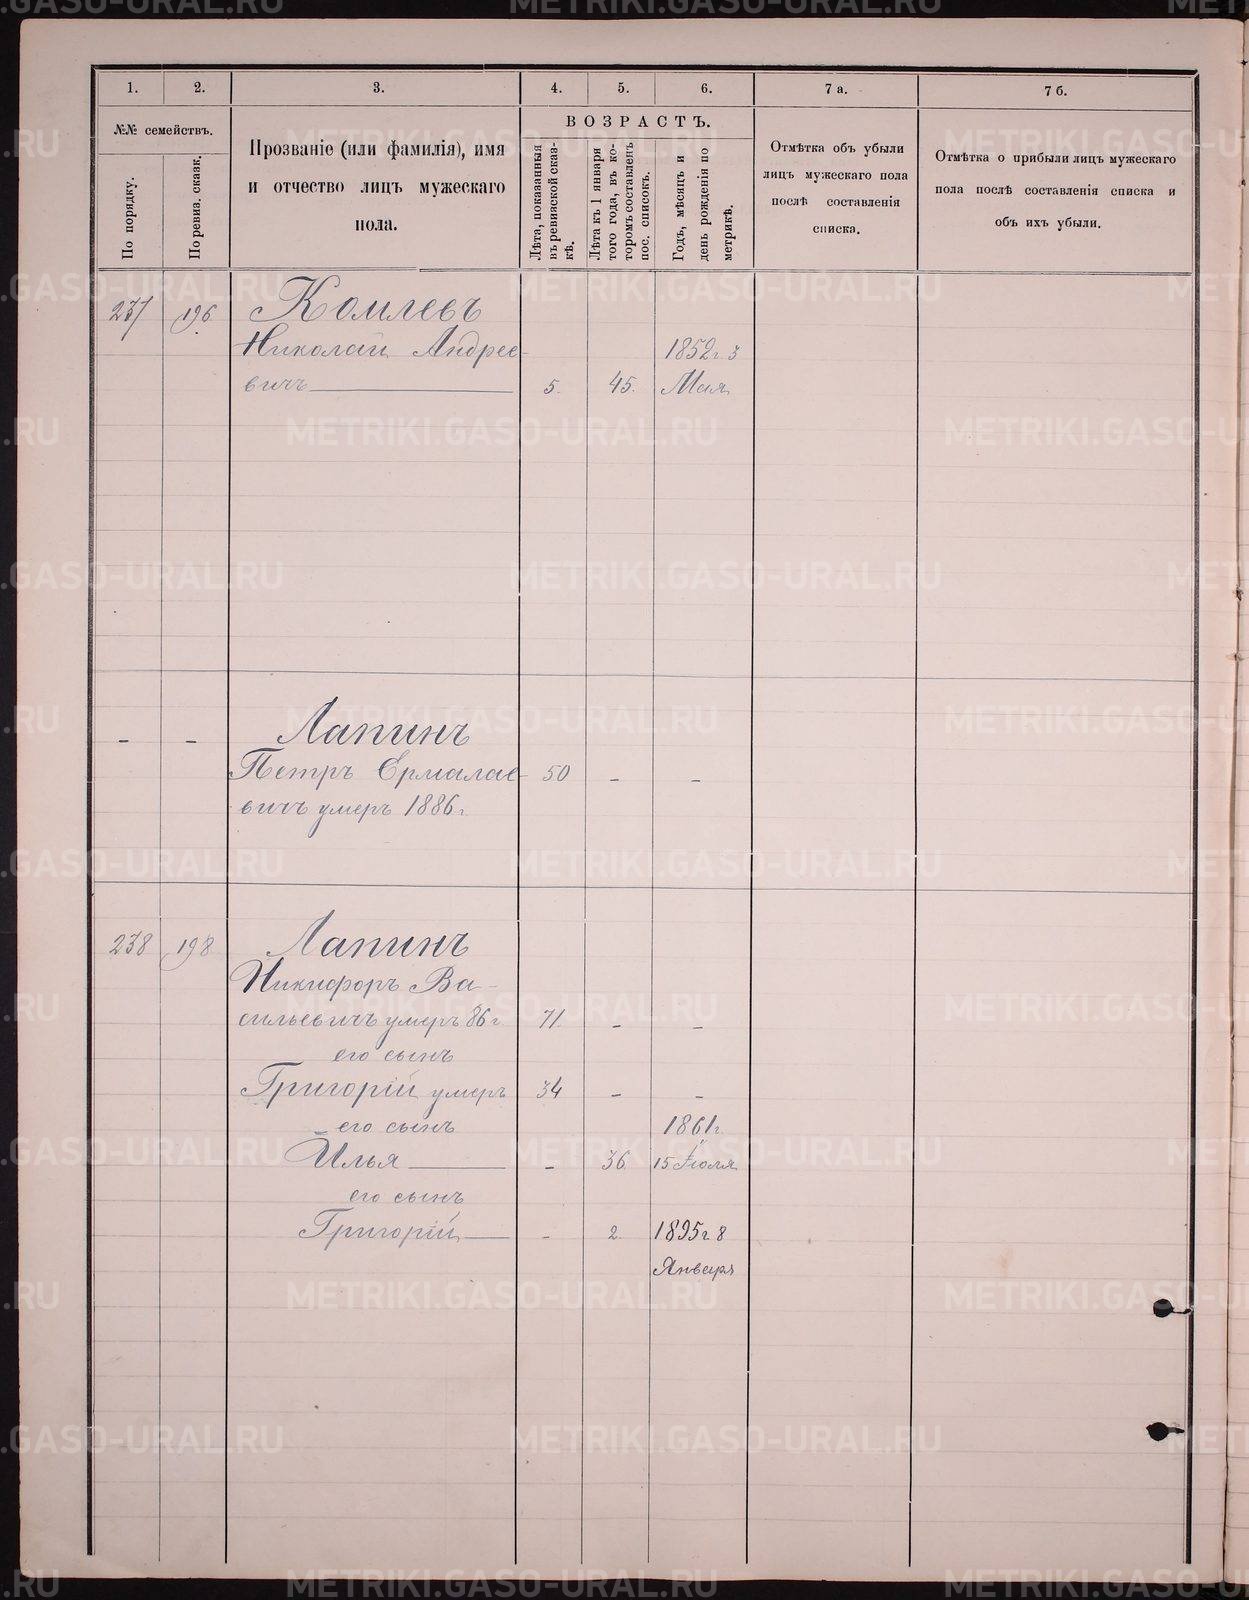 1.
2.
3.
4.
5.
6.
7 а.
7 б.
№№ семействъ.
По порядку.
По ревиз. сказк.
Прозваніе (или фамилія), имя
и отчество лицъ мужескаго
пола.
ВОЗРАСТЪ.
Лѣта, показанныя
въ ревизской сказ-
кѣ.
Лѣта къ 1 января
того года, въ ко-
торомъ составленъ
пос. списокъ.
Годъ, мѣсяцъ и
день рожденія по
метрикѣ.
Отмѣтка объ убыли
лицъ мужескаго пола
послѣ составленія
списка.
Отмѣтка о прибыли лицъ мужескаго
пола послѣ составленія списка и
объ ихъ убыли.
237 196 Комлевъ
Николай Андрее- 1852 г. 3
вичъ 5. 45. Мая
- - Лапинъ
Петръ Ермалае- 50 - -
вичъ умеръ 1886 г.
238 198 Лапинъ
Никифоръ Ва-
сильевичъ умеръ 86 г. 71. - -
его сынъ
Григорій умеръ 34 - -
его сынъ 1861 г.
Илья - 36. 15 Іюля
его сынъ
Григорій - 2. 1895 г. 8
Января
METRIKI.GASO-URAL.RU